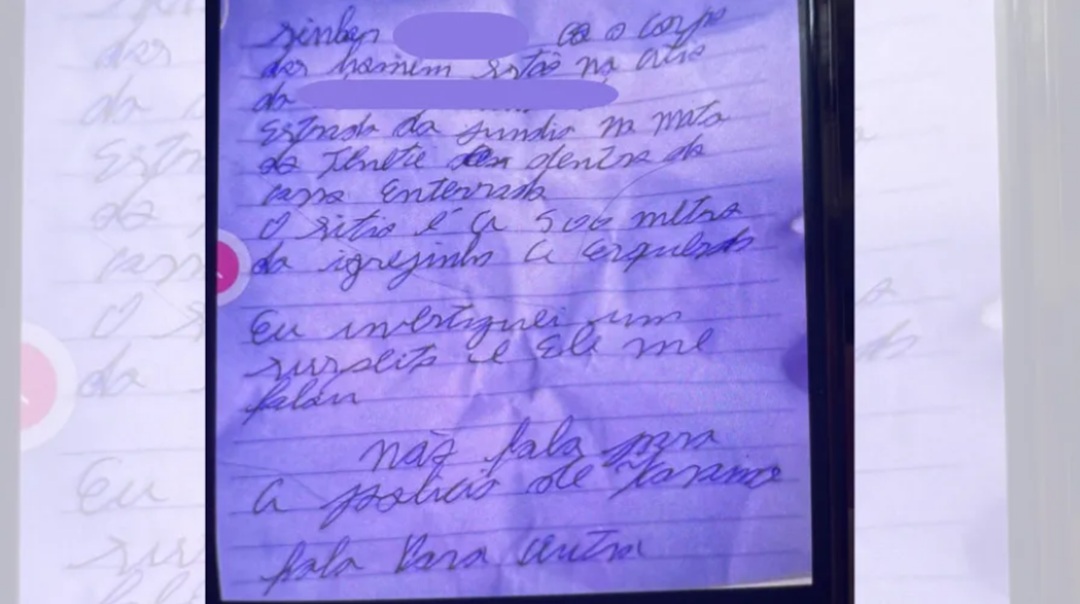 senhor ca o corpo
dos homem estão na atra
da
Estrada da Jundia na mata
do Tenete dentro do
carro Enterrado
O sitio é a 500 metro
da igrejinha a Esquerda
Eu investiguei um
surpeito e Ele me
falou
não fala para
a policia de
fala Para Outra